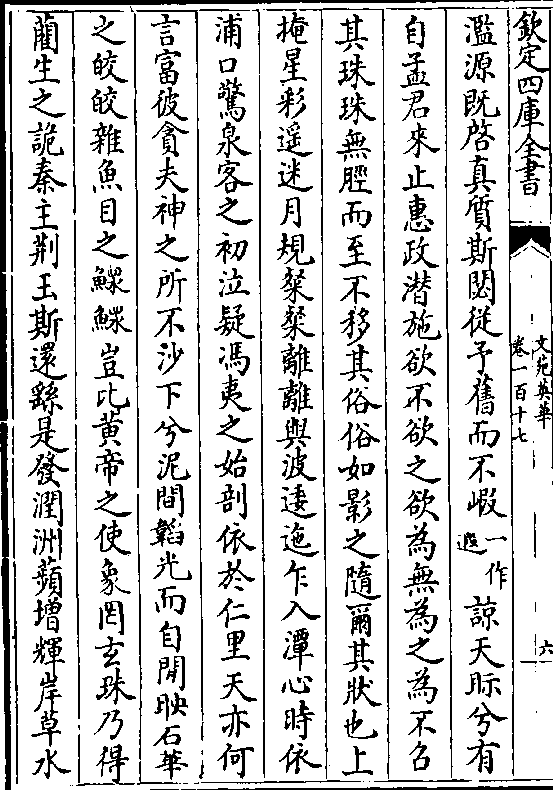 欽定四庫全書
文苑英華
卷一百十七
六
濫源既啓真質斯閟從予舊而不嘏一作遐諒天眎兮有
自孟君來止惠政潛施欲不欲之欲為無為之為不召
其珠珠無脛而至不移其俗俗如影之隨爾其狀也上
掩星彩遥迷月規粲粲離離與波逶迤乍入潭心時依
浦口驚泉客之初泣疑馮夷之始剖依於仁里天亦何
言富彼貪夫神之所不沙下兮泥間韜光而自閒映石華
之皎皎雜魚目之鰥鰥豈比黄帝之使象罔玄珠乃得
藺生之詭秦主荆玉斯還繇是發潤洲蘋增輝岸草水